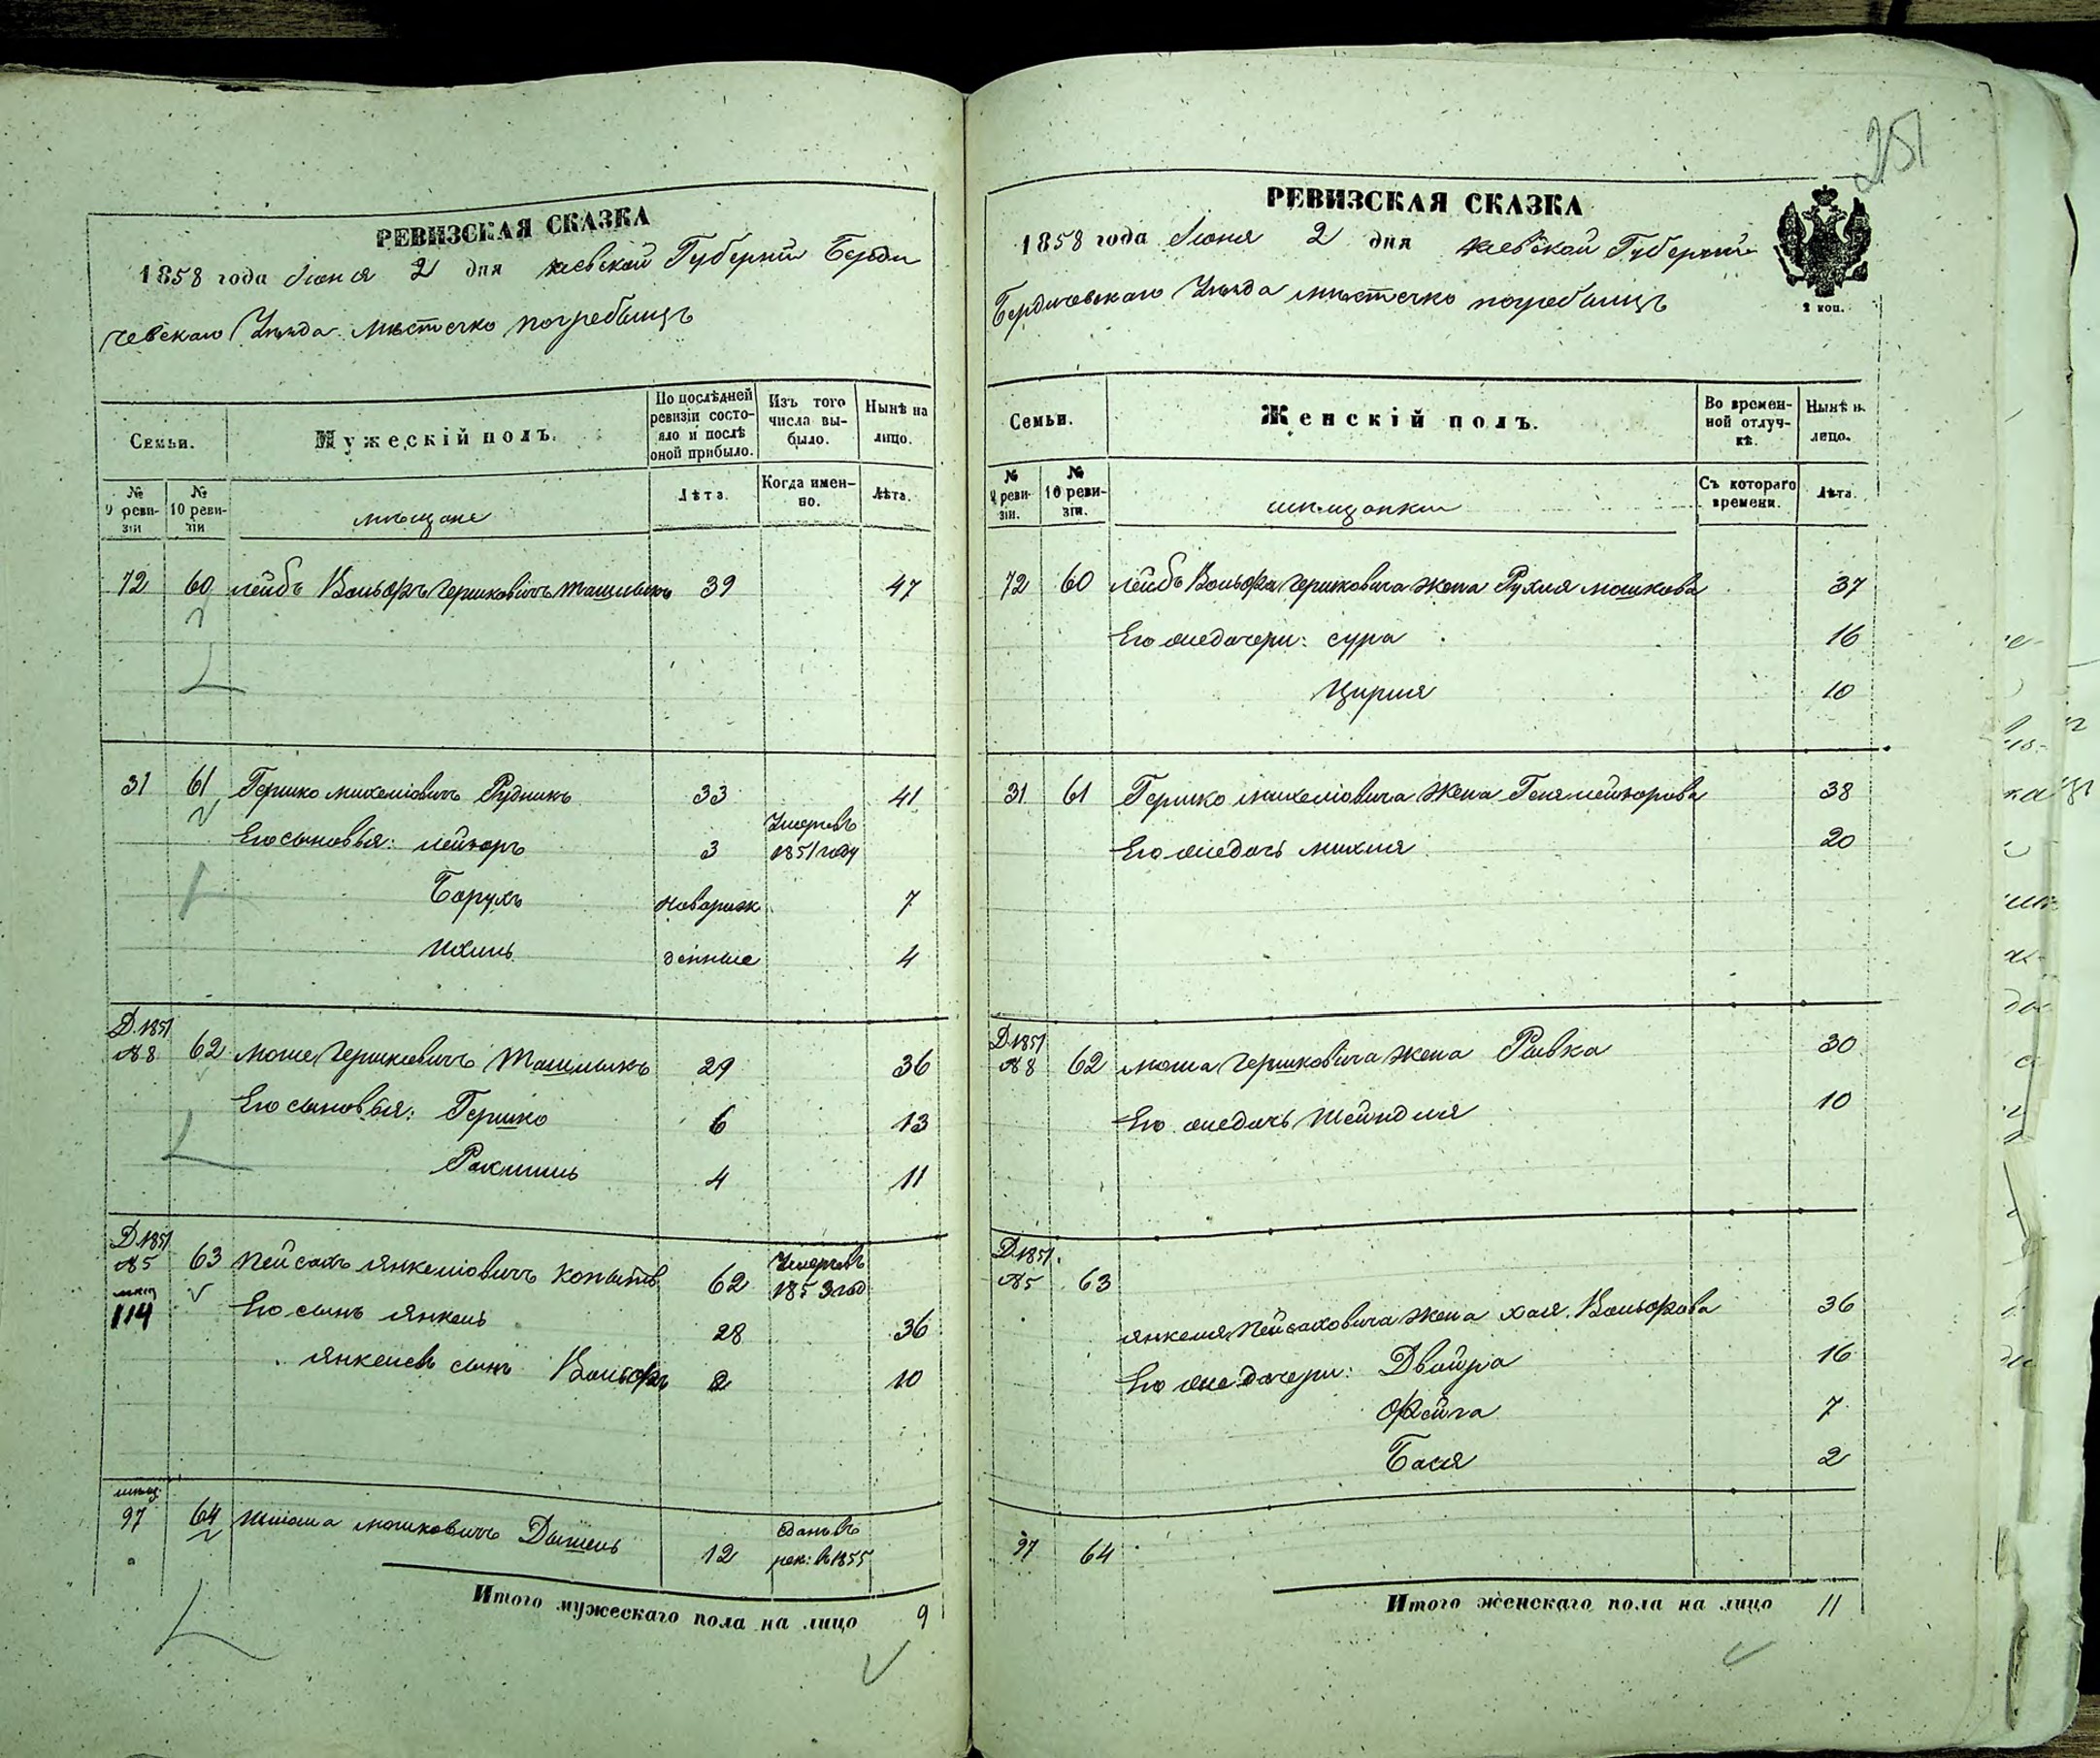 РЕВИЗСКАЯ СКАЗКА
1858 года Июня 2 дня Киевской Губернии Берди
чевскаго Уезда местечко погребищъ
Семьи.
Мужескій полъ.
По послѣдней ревизіи состояло и послѣ оной прибыло.
Изъ того числа выбыло.
Нынѣ на лицо.
№ 9 ревизіи
№ 10 ревизіи
мещане
Лѣта.
Когда именно.
Лѣта.
72 60 лейбъ Вольфъ Гершковичъ Ташлыкъ 39 47
31 61 Гершко михелiовичъ Рудникъ 33 41
Его сыновья: лейзоръ 3 Умеръ въ 1851 году
Борухъ новорож 7
Ихиль денные 4
Д. 1851 №8 62 моше Гершковичъ Ташлыкъ 29 36
Его сыновья: Гершко 6 13
Рахмиль 4 11
Д. 1851 №5 63 Пейсахъ янкелiовичъ копытъ 62 Умеръ въ 1853 год
114 Его сынъ янкель 28 36
янкелевъ сынъ Вольфъ 2 10
мещ. 97 64 мошковичъ Дышель 12 сданъ въ рек: въ 1855
Итого мужескаго пола на лицо 9
251
РЕВИЗСКАЯ СКАЗКА
1858 года Июня 2 дня Киевской Губернии
Бердичевскаго Уезда местечко погребищъ
2 коп.
Семьи.
Женскій полъ.
Во временной отлучкѣ.
Нынѣ н. лицо.
№ 9 ревизіи.
№ 10 ревизіи.
мещанки
Съ котораго времени.
Лѣта.
72 60 лейбъ Вольфа Гершковича жена Рухля мошкова 37
Его же дочери: сура 16
Цирля 10
31 61 Гершко михелiовича жена Геня лейзорова 38
Его же дочь михля 20
Д. 1851 №8 62 моша Гершковича жена Ривка 30
Его же дочь Шейндля 10
Д. 1851. №5 63
янкеля Пейсаховича жена хая Вольфова 36
Его же дочери: Двойра 16
Фейга 7
Бася 2
97 64
Итого женскаго пола на лицо 11